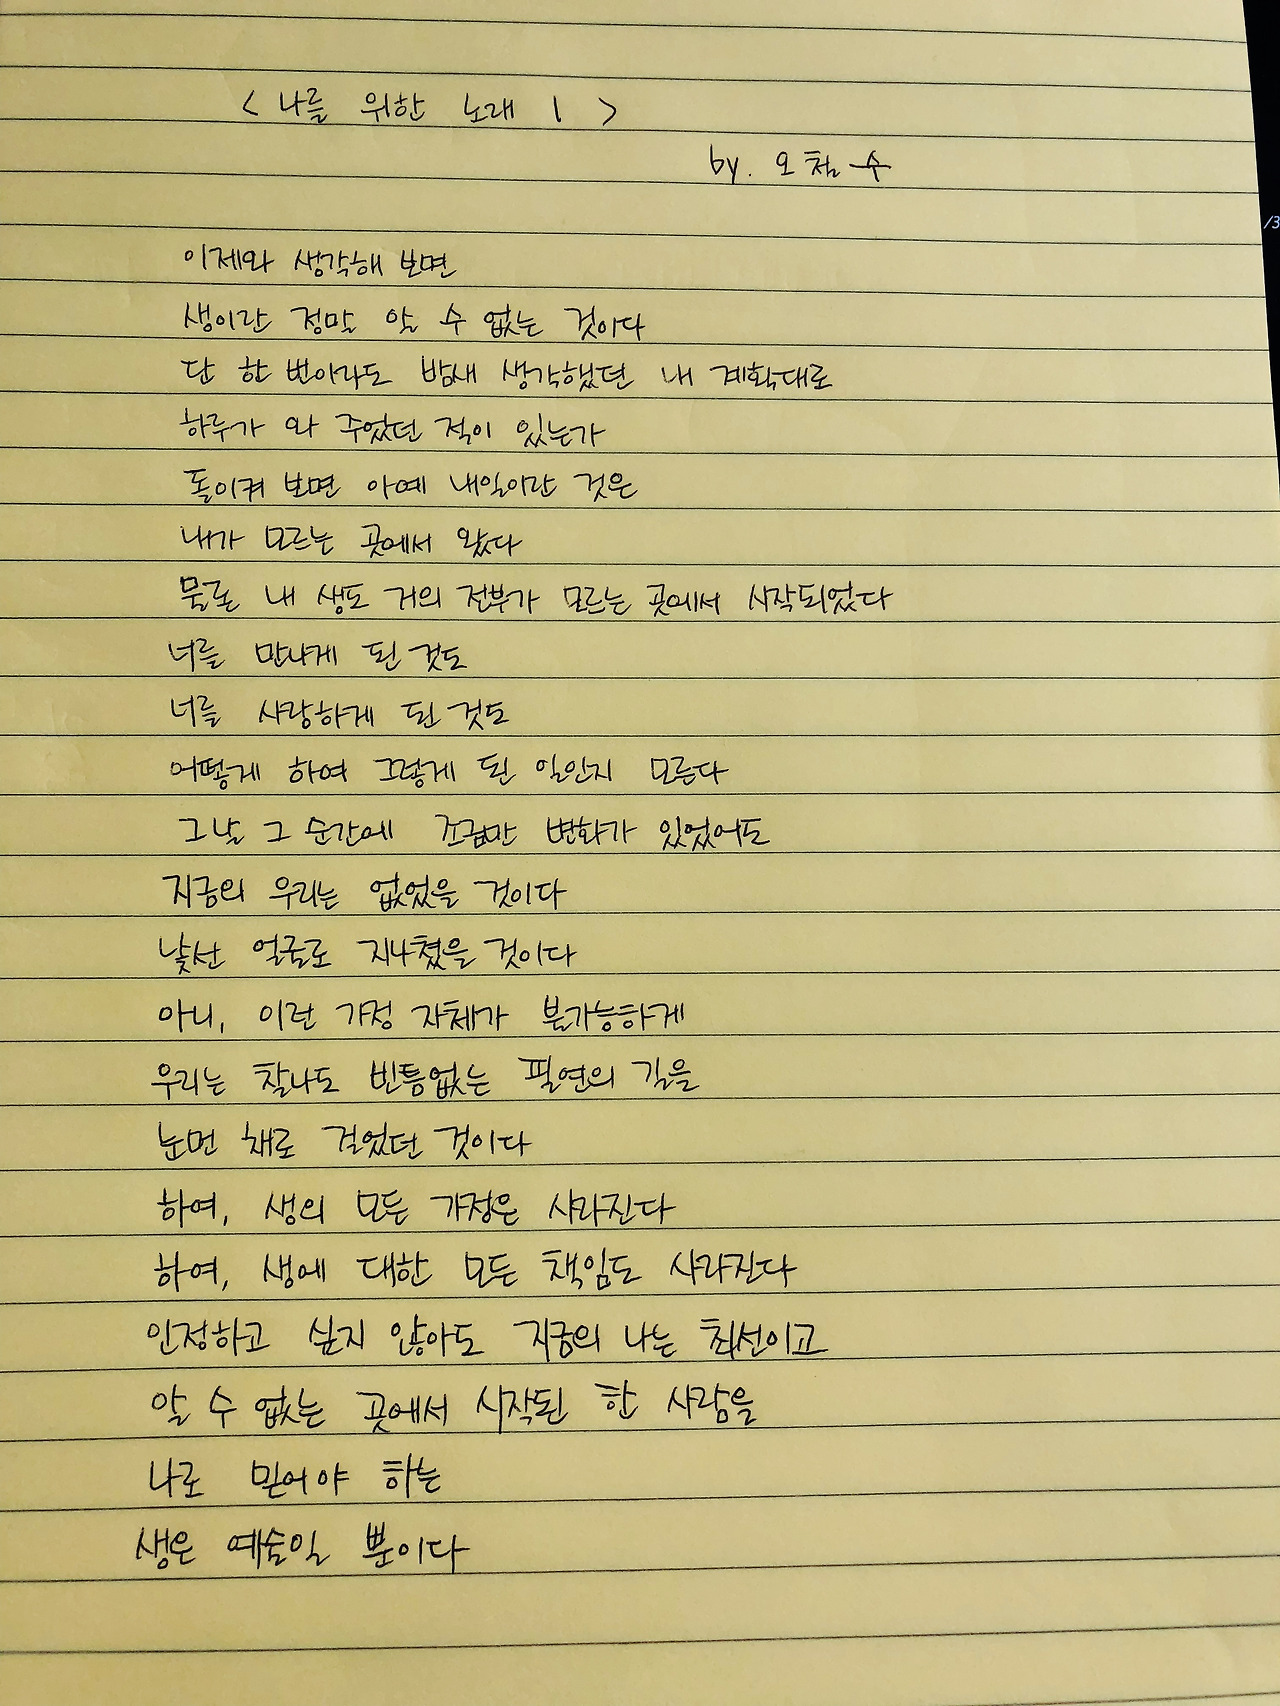 < 나를 위한 노래 1 >
by. 오철수
이제와 생각해 보면
생이란 정말 알 수 없는 것이다
단 한 번이라도 밤새 생각했던 내 계획대로
하루가 와 주었던 적이 있는가
돌이켜 보면 아예 내일이란 것은
내가 모르는 곳에서 왔다
물론 내 생도 거의 전부가 모르는 곳에서 시작되었다
너를 만나게 된 것도
너를 사랑하게 된 것도
어떻게 하여 그렇게 된 일인지 모른다
그날 그 순간에 조금만 변화가 있었어도
지금의 우리는 없었을 것이다
낯선 얼굴로 지나쳤을 것이다
아니, 이런 가정 자체가 불가능하게
우리는 찰나도 빈틈없는 필연의 길을
눈먼 채로 걸었던 것이다
하여, 생의 모든 가정은 사라진다
하여, 생에 대한 모든 책임도 사라진다
인정하고 싶지 않아도 지금의 나는 최선이고
알 수 없는 곳에서 시작된 한 사람을
나로 믿어야 하는
생은 예술일 뿐이다
/3